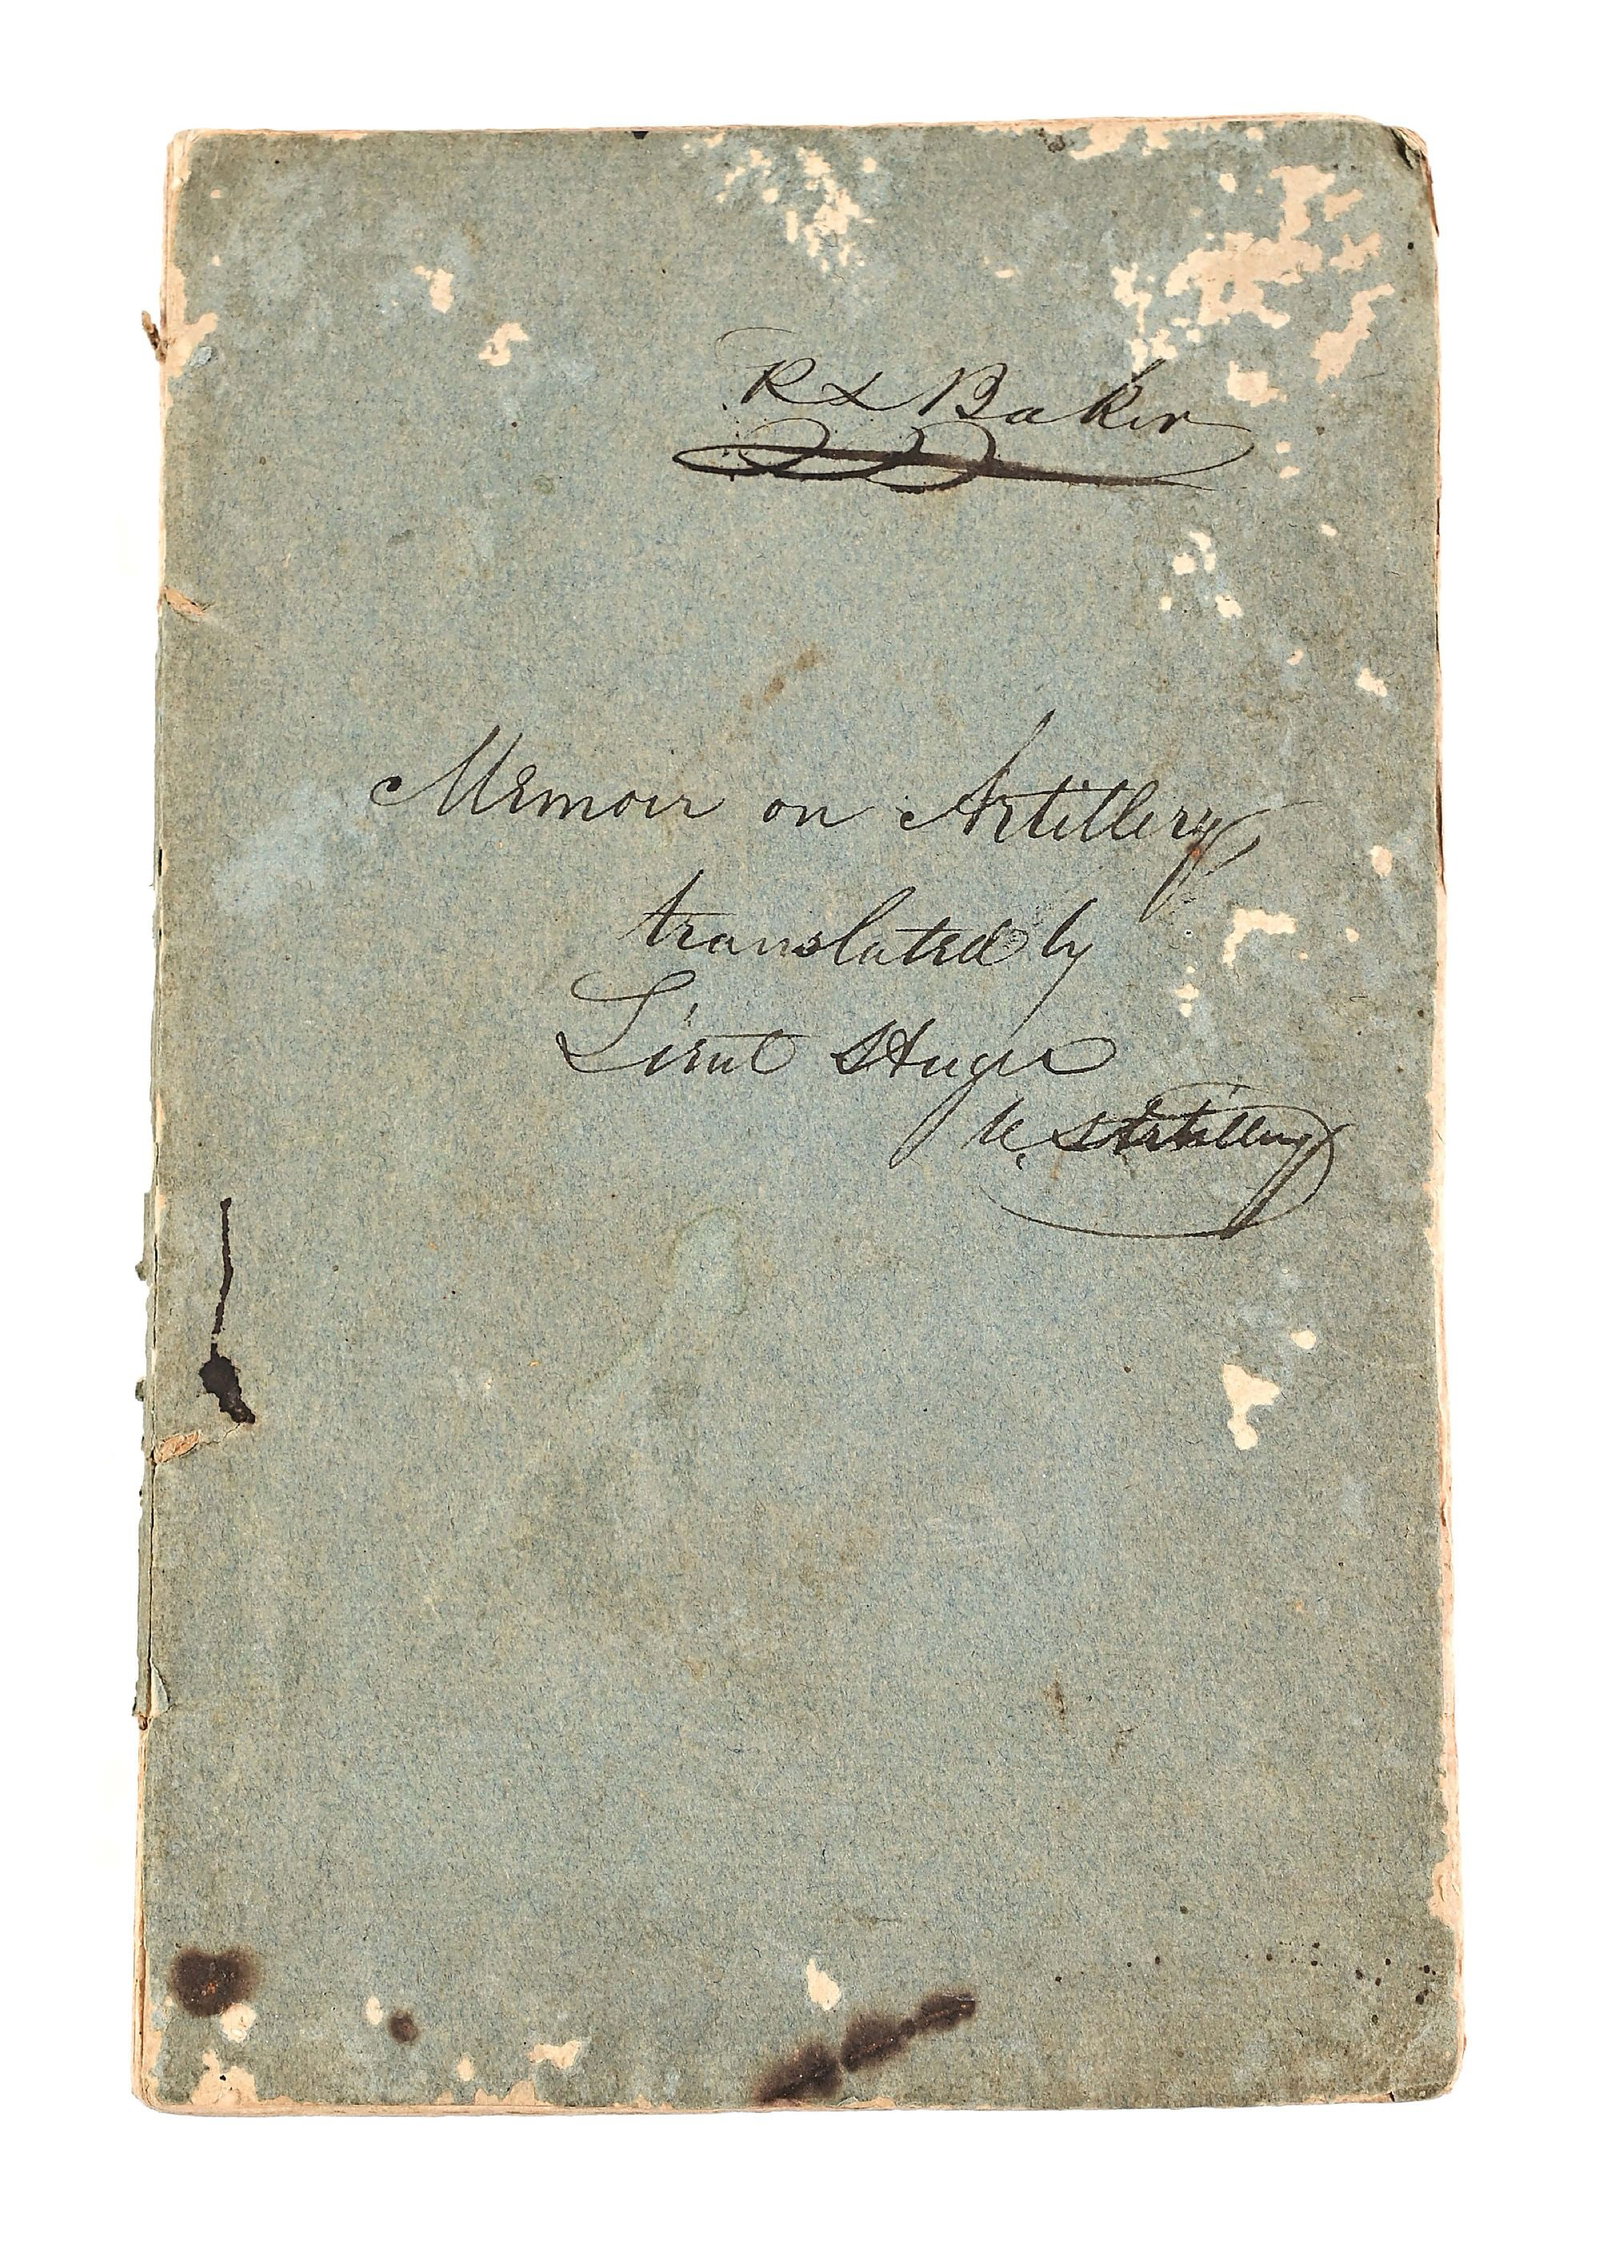 R L Baker
Memoir on Artillery
translated by
Lieut Huger
U. S Artillery